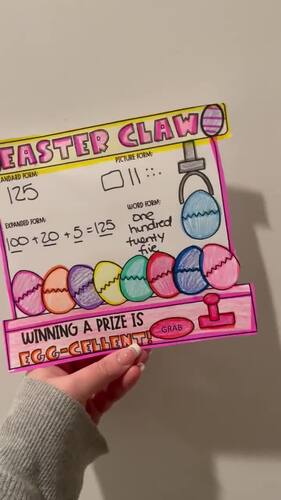 EASTER CLAW
ANDARD FORM:
PICTURE FORM:
125
EXPANDED FORM:
WORD FORM:
100 + 20 + 5 = 125
one
hundred
twenty
five
WINNING A PRIZE IS
EGG-CELLENT!
GRAB